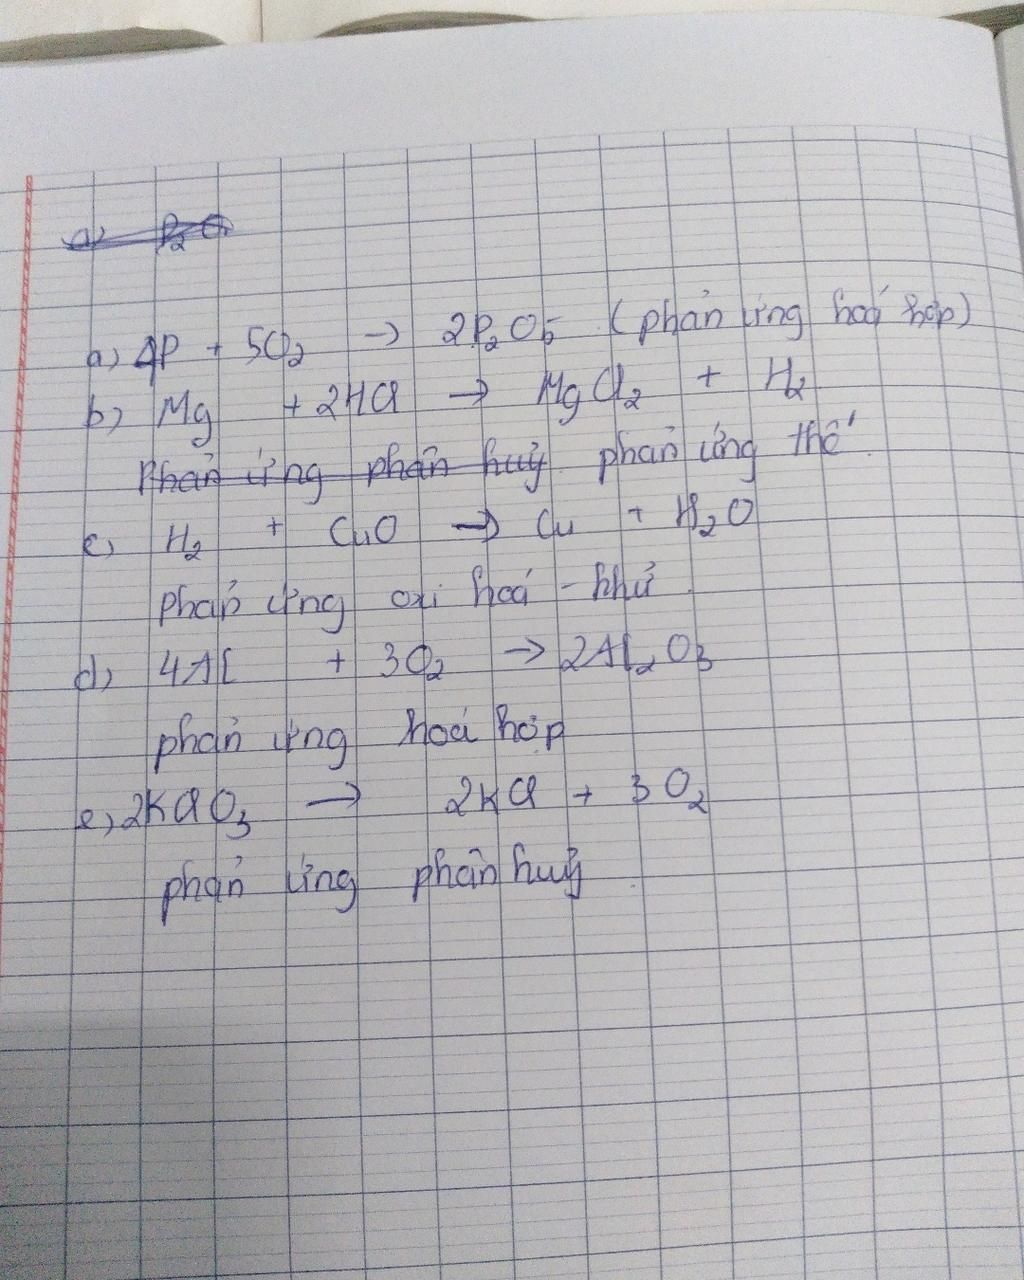 a) P₂O
a) 4P + 5O₂ → 2P₂O5 (phản ứng hoá hợp)
b) Mg + 2HCl → MgCl₂ + H₂
Phản ứng phân huỷ phản ứng thế
c) H₂ + CuO → Cu + H₂O
phản ứng oxi hoá - khử
d) 4Al + 3O₂ → 2Al₂O3
phản ứng hoá hợp
e) 2KClO₃ → 2KCl + 3O₂
phản ứng phân huỷ